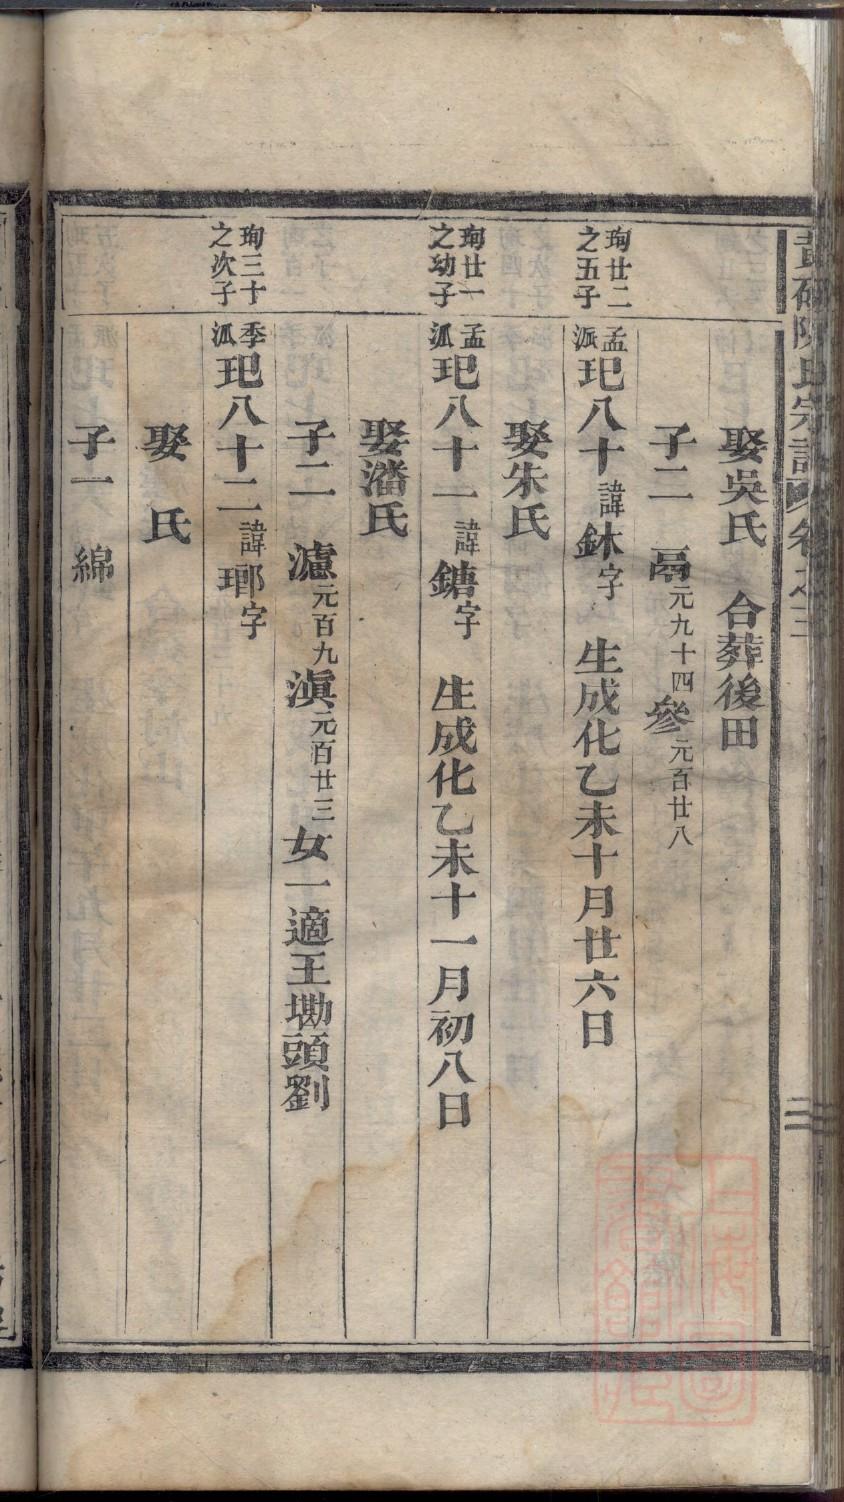 娶吳氏 合葬後田
子二 鬲元九十四 參元百廿八
珣廿二之五子
孟派 玘八十 諱鉥字 生成化乙未十月廿六日
娶朱氏
珣廿一之幼子
孟派 玘八十一 諱鎕字 生成化乙未十一月初八日
娶潘氏
子二 濾元百九 滇元百廿三 女一適王墈頭劉
珣三十之次子
季派 玘八十二 諱瑘字
娶 氏
子一 綿